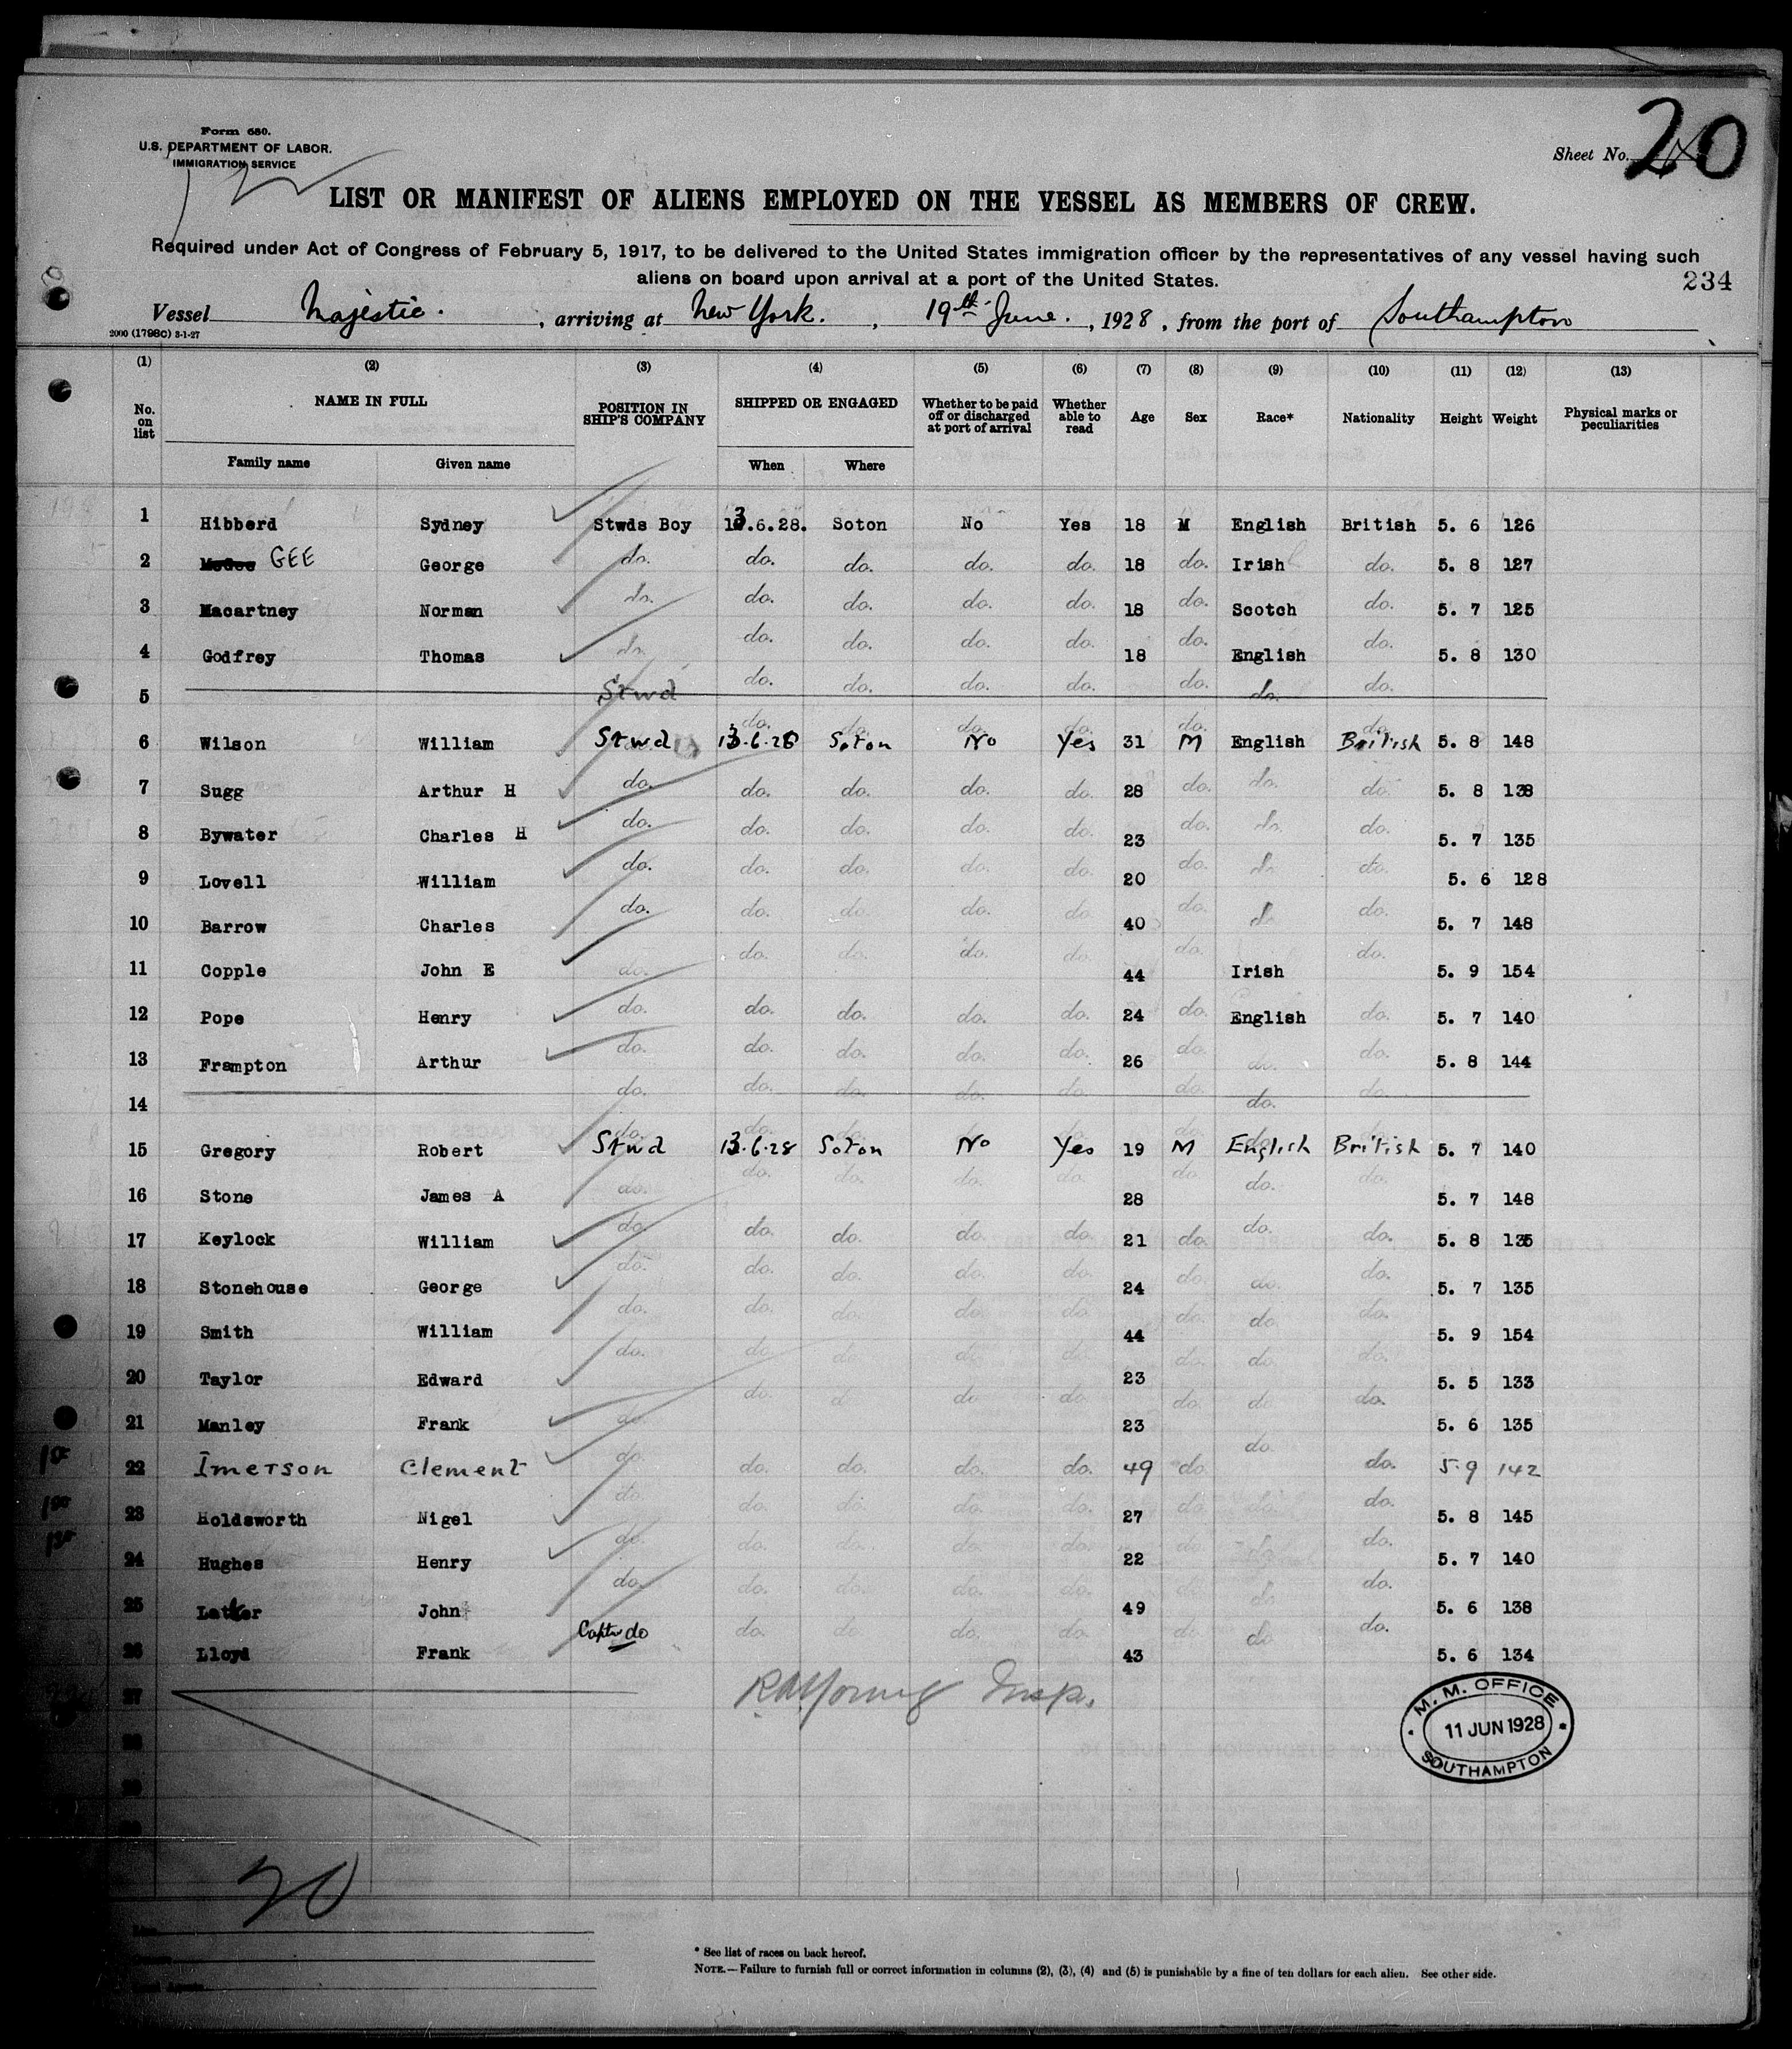 Form 680.
U.S. DEPARTMENT OF LABOR.
IMMIGRATION SERVICE
Sheet No. 20
LIST OR MANIFEST OF ALIENS EMPLOYED ON THE VESSEL AS MEMBERS OF CREW.
Required under Act of Congress of February 5, 1917, to be delivered to the United States immigration officer by the representatives of any vessel having such
aliens on board upon arrival at a port of the United States.
234
Vessel Majestic. , arriving at New York. , 19th June. , 1928 , from the port of Southampton
2000 (1798c) 3-1-27
(1) (2) (3) (4) (5) (6) (7) (8) (9) (10) (11) (12) (13)
No. on list NAME IN FULL POSITION IN SHIP'S COMPANY SHIPPED OR ENGAGED Whether to be paid off or discharged at port of arrival Whether able to read Age Sex Race* Nationality Height Weight Physical marks or peculiarities
Family name Given name When Where
1 Hibberd Sydney Stwds Boy 13.6.28. Soton No Yes 18 M English British 5. 6 126
2 GEE George do. do. do. do. do. 18 do. Irish do. 5. 8 127
3 Macartney Norman do. do. do. do. do. 18 do. Scotch do. 5. 7 125
4 Godfrey Thomas do. do. do. do. do. 18 do. English do. 5. 8 130
5 Stwd do. do. do. do. do. do. do.
6 Wilson William Stwd 13.6.28 Soton No Yes 31 M English British 5. 8 148
7 Sugg Arthur H do. do. do. do. do. 28 do. do. do. 5. 8 138
8 Bywater Charles H do. do. do. do. do. 23 do. do. do. 5. 7 135
9 Lovell William do. do. do. do. do. 20 do. do. do. 5. 6 128
10 Barrow Charles do. do. do. do. do. 40 do. do. do. 5. 7 148
11 Copple John E do. do. do. do. do. 44 do. Irish do. 5. 9 154
12 Pope Henry do. do. do. do. do. 24 do. English do. 5. 7 140
13 Frampton Arthur do. do. do. do. do. 26 do. do. do. 5. 8 144
14 do. do. do. do. do. do. do. do.
15 Gregory Robert Stwd 13.6.28 Soton No Yes 19 M English British 5. 7 140
16 Stone James A do. do. do. do. do. 28 do. do. do. 5. 7 148
17 Keylock William do. do. do. do. do. 21 do. do. do. 5. 8 135
18 Stonehouse George do. do. do. do. do. 24 do. do. do. 5. 7 135
19 Smith William do. do. do. do. do. 44 do. do. do. 5. 9 154
20 Taylor Edward do. do. do. do. do. 23 do. do. do. 5. 5 133
21 Manley Frank do. do. do. do. do. 23 do. do. do. 5. 6 135
22 Imerson Clement do. do. do. do. do. 49 do. do. do. 5.9 142
23 Holdsworth Nigel do. do. do. do. do. 27 do. do. do. 5. 8 145
24 Hughes Henry do. do. do. do. do. 22 do. do. do. 5. 7 140
25 Latter John do. do. do. do. do. 49 do. do. do. 5. 6 138
26 Lloyd Frank do do. do. do. do. 43 do. do. do. 5. 6 134
27
28
29
30
Insp.
M. M. OFFICE
11 JUN 1928
SOUTHAMPTON
20
* See list of races on back hereof.
NOTE.—Failure to furnish full or correct information in columns (2), (3), (4) and (5) is punishable by a fine of ten dollars for each alien. See other side.